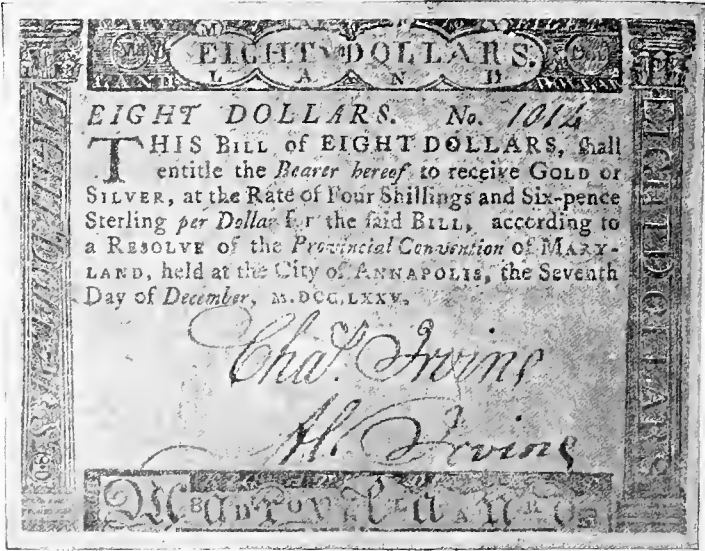 M A R Y
EIGHT DOLLARS.
L A N D
EIGHT DOLLARS. No. 1014
THIS BILL of EIGHT DOLLARS, ſhall
entitle the Bearer hereof to receive GOLD or
SILVER, at the Rate of Four Shillings and Six-pence
Sterling per Dollar for the ſaid BILL, according to
a RESOLVE of the Provincial Convention of MARY-
LAND, held at the City of ANNAPOLIS, the Seventh
Day of December, M.DCC.LXXV.
Chaˢ. Irvine
Irvine
EIGHT DOLLARS